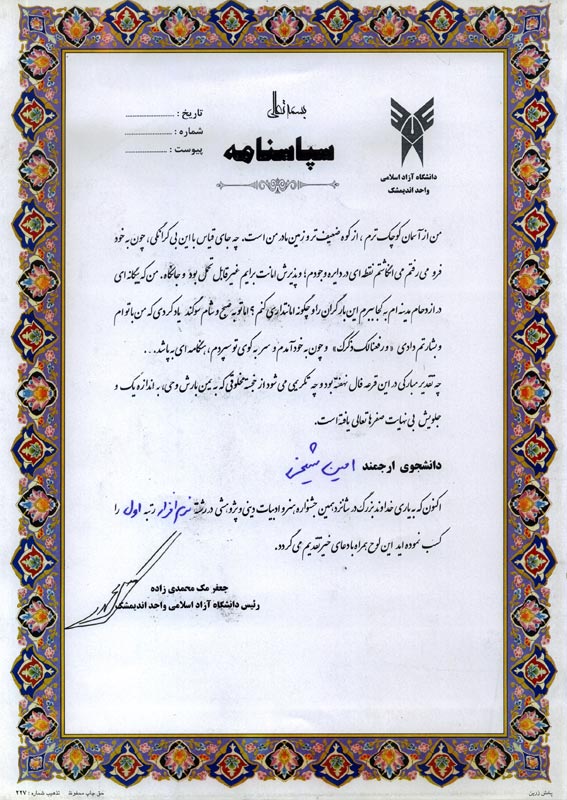 بسمه تعالی
تاریخ : ....................
شماره : ....................
پیوست : ....................
سپاسنامه
دانشگاه آزاد اسلامی
واحد اندیمشک
من از آسمان کوچک ترم ، از کوه ضعیف تر و زمین مادر من است. چه جای قیاس با این بی کرانگی، چون به خود
فرو می رفتم می انگاشتم نقطه ای در دایره وجودم؛ و پذیرش امانت برایم غیر قابل تحمل بود و جانکاه. من که بیگانه ای
در ازدحام مدینه ام به کجا ببرم این بار گران را و چگونه امانتداری کنم ؟ اما تو به صبح و شام سوگند یاد کردی که من با تو ام
و بشارتم دادی «ورفعنالک ذکرک» و چون به خود آمدم و سر به کوی تو سپردم ، هنگامه ای به پا شد...
چه تقدیر مبارکی در این قرعه فال نهفته بود و چه تکریمی می شود از خجسته مخلوقی که به یمن بارش وحی، به اندازه یک و
جلویش بی نهایت صفرها تعالی یافته است.
دانشجوی ارجمند امین
اکنون که به یاری خداوند بزرگ در شانزدهمین جشنواره هنر و ادبیات دینی و پژوهشی در رشتۀ نرم افزار رتبه اول را
کسب نموده اید این لوح همراه با دعای خیر تقدیم می گردد.
جعفر مک محمدی زاده
رئیس دانشگاه آزاد اسلامی واحد اندیمشک
حق چاپ محفوظ تذهیب شماره : ۲۲۷
پخش زرین